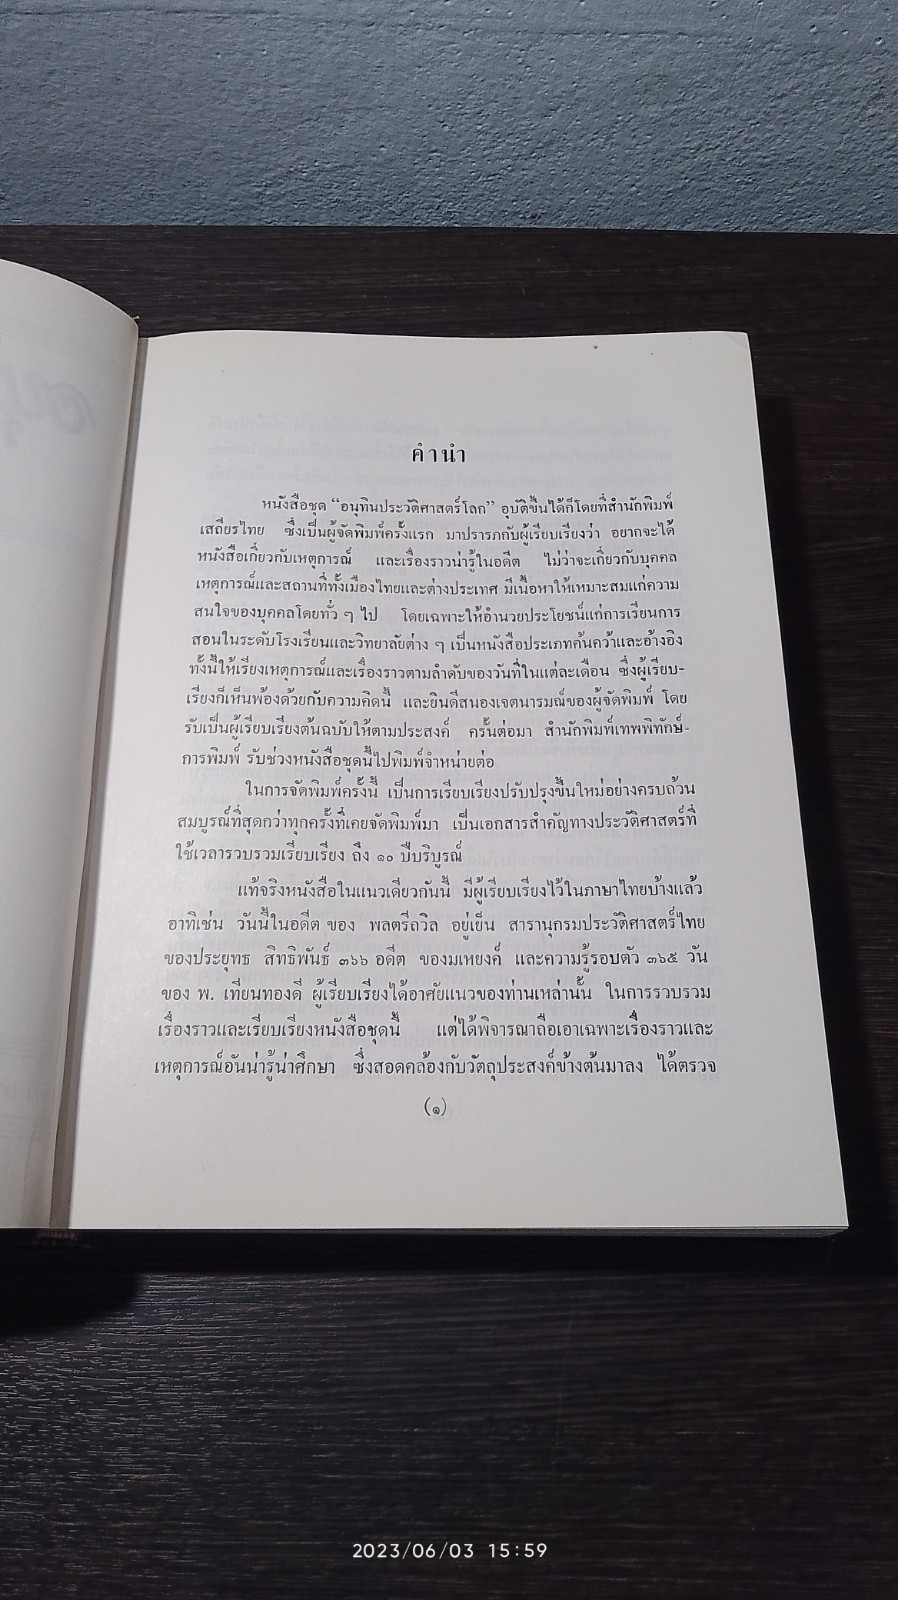 คำนำ
หนังสือชุด “อนุทินประวัติศาสตร์โลก” อุบัติขึ้นได้ก็โดยที่สำนักพิมพ์
เสถียรไทย ซึ่งเป็นผู้จัดพิมพ์ครั้งแรก มาปรารภกับผู้เรียบเรียงว่า อยากจะได้
หนังสือเกี่ยวกับเหตุการณ์ และเรื่องราวน่ารู้ในอดีต ไม่ว่าจะเกี่ยวกับบุคคล
เหตุการณ์และสถานที่ทั้งเมืองไทยและต่างประเทศ มีเนื้อหาให้เหมาะสมแก่ความ
สนใจของบุคคลโดยทั่ว ๆ ไป โดยเฉพาะให้อำนวยประโยชน์แก่การเรียนการ
สอนในระดับโรงเรียนและวิทยาลัยต่าง ๆ เป็นหนังสือประเภทค้นคว้าและอ้างอิง
ทั้งนี้ให้เรียงเหตุการณ์และเรื่องราวตามลำดับของวันที่ในแต่ละเดือน ซึ่งผู้เรียบ-
เรียงก็เห็นพ้องด้วยกับความคิดนี้ และยินดีสนองเจตนารมณ์ของผู้จัดพิมพ์ โดย
รับเป็นผู้เรียบเรียงต้นฉบับให้ตามประสงค์ ครั้นต่อมา สำนักพิมพ์เทพพิทักษ์-
การพิมพ์ รับช่วงหนังสือชุดนี้ไปพิมพ์จำหน่ายต่อ
ในการจัดพิมพ์ครั้งนี้ เป็นการเรียบเรียงปรับปรุงขึ้นใหม่อย่างครบถ้วน
สมบูรณ์ที่สุดกว่าทุกครั้งที่เคยจัดพิมพ์มา เป็นเอกสารสำคัญทางประวัติศาสตร์ที่
ใช้เวลารวบรวมเรียบเรียง ถึง ๑๐ ปีบริบูรณ์
แท้จริงหนังสือในแนวเดียวกันนี้ มีผู้เรียบเรียงไว้ในภาษาไทยบ้างแล้ว
อาทิเช่น วันนี้ในอดีต ของ พลตรีถวิล อยู่เย็น สารานุกรมประวัติศาสตร์ไทย
ของประยุทธ สิทธิพันธ์ ๓๖๖ อดีต ของมเหยงค์ และความรู้รอบตัว ๓๖๕ วัน
ของ พ. เทียนทองดี ผู้เรียบเรียงได้อาศัยแนวของท่านเหล่านั้น ในการรวบรวม
เรื่องราวและเรียบเรียงหนังสือชุดนี้ แต่ได้พิจารณาถือเอาเฉพาะเรื่องราวและ
เหตุการณ์อันน่ารู้น่าศึกษา ซึ่งสอดคล้องกับวัตถุประสงค์ข้างต้นมาลง ได้ตรวจ
(๑)
2023/06/03 15:59